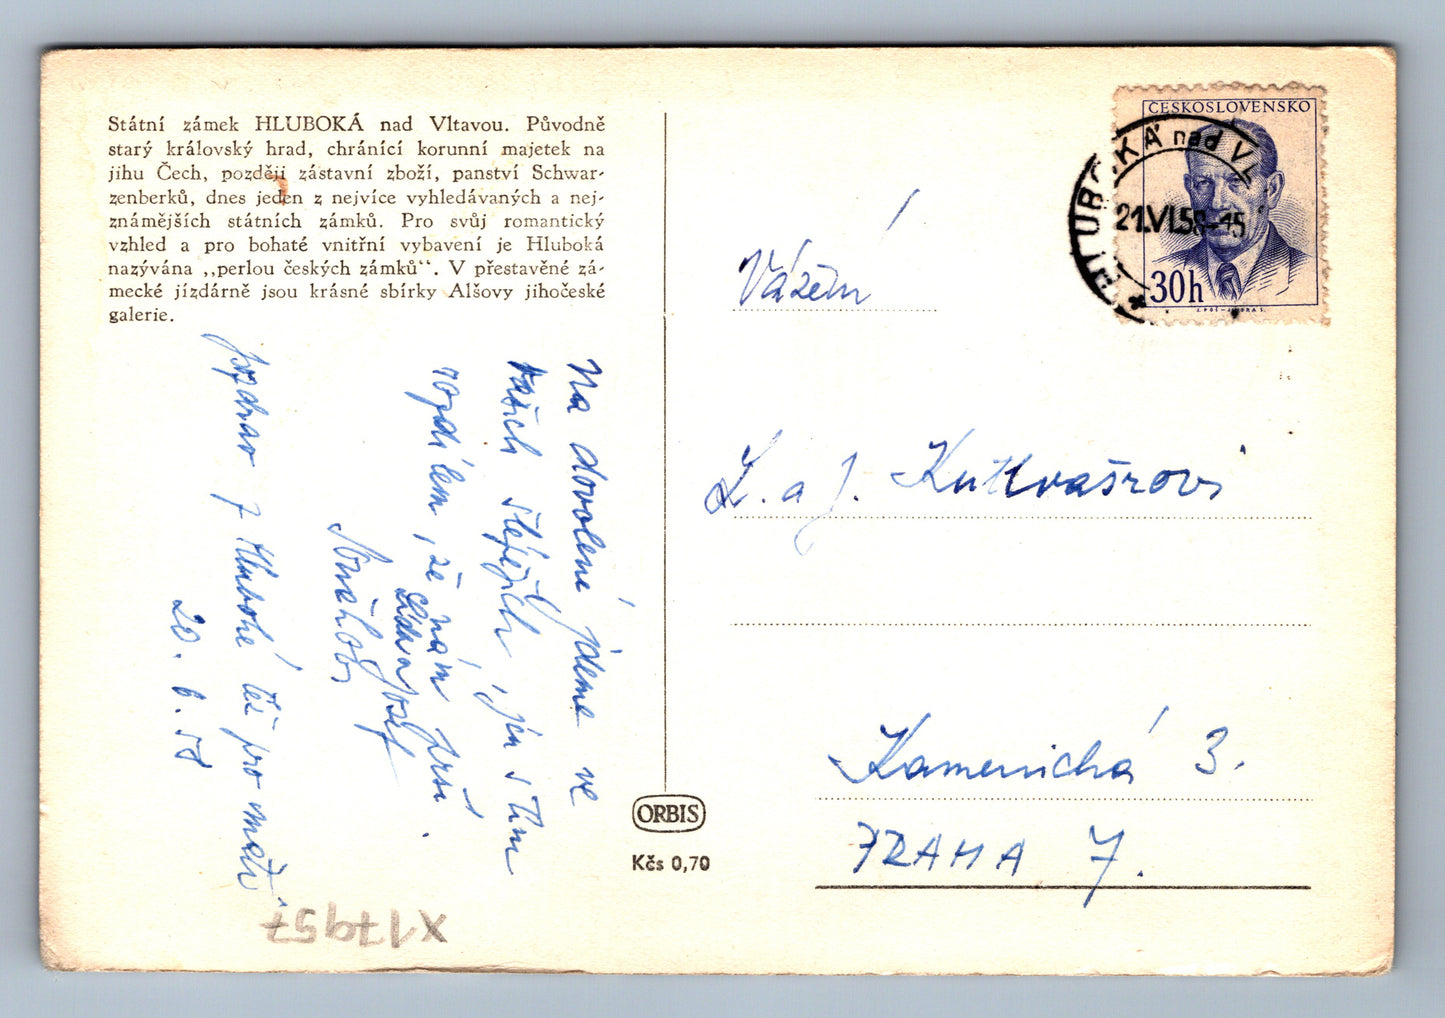 Státní zámek HLUBOKÁ nad Vltavou. Původně
starý královský hrad, chránící korunní majetek na
jihu Čech, později zástavní zboží, panství Schwar-
zenberků, dnes jeden z nejvíce vyhledávaných a nej-
známějších státních zámků. Pro svůj romantický
vzhled a pro bohaté vnitřní vybavení je Hluboká
nazývána „perlou českých zámků“. V přestavěné zá-
mecké jízdárně jsou krásné sbírky Alšovy jihočeské
galerie.
Na dovolené jdeme ve
Vašich šlépějích, jen s tím
rozdílem, že nám prší.
Josef
pozdrav z Hluboké též pro
20. 6. 58
X17957
ORBIS
Kčs 0,70
ČESKOSLOVENSKO
30h
HLUBOKÁ nad Vl.
21.VI.58-15
Vážení
L. a J. Kutlvašrovi
Kamenická 3.
PRAHA 7.